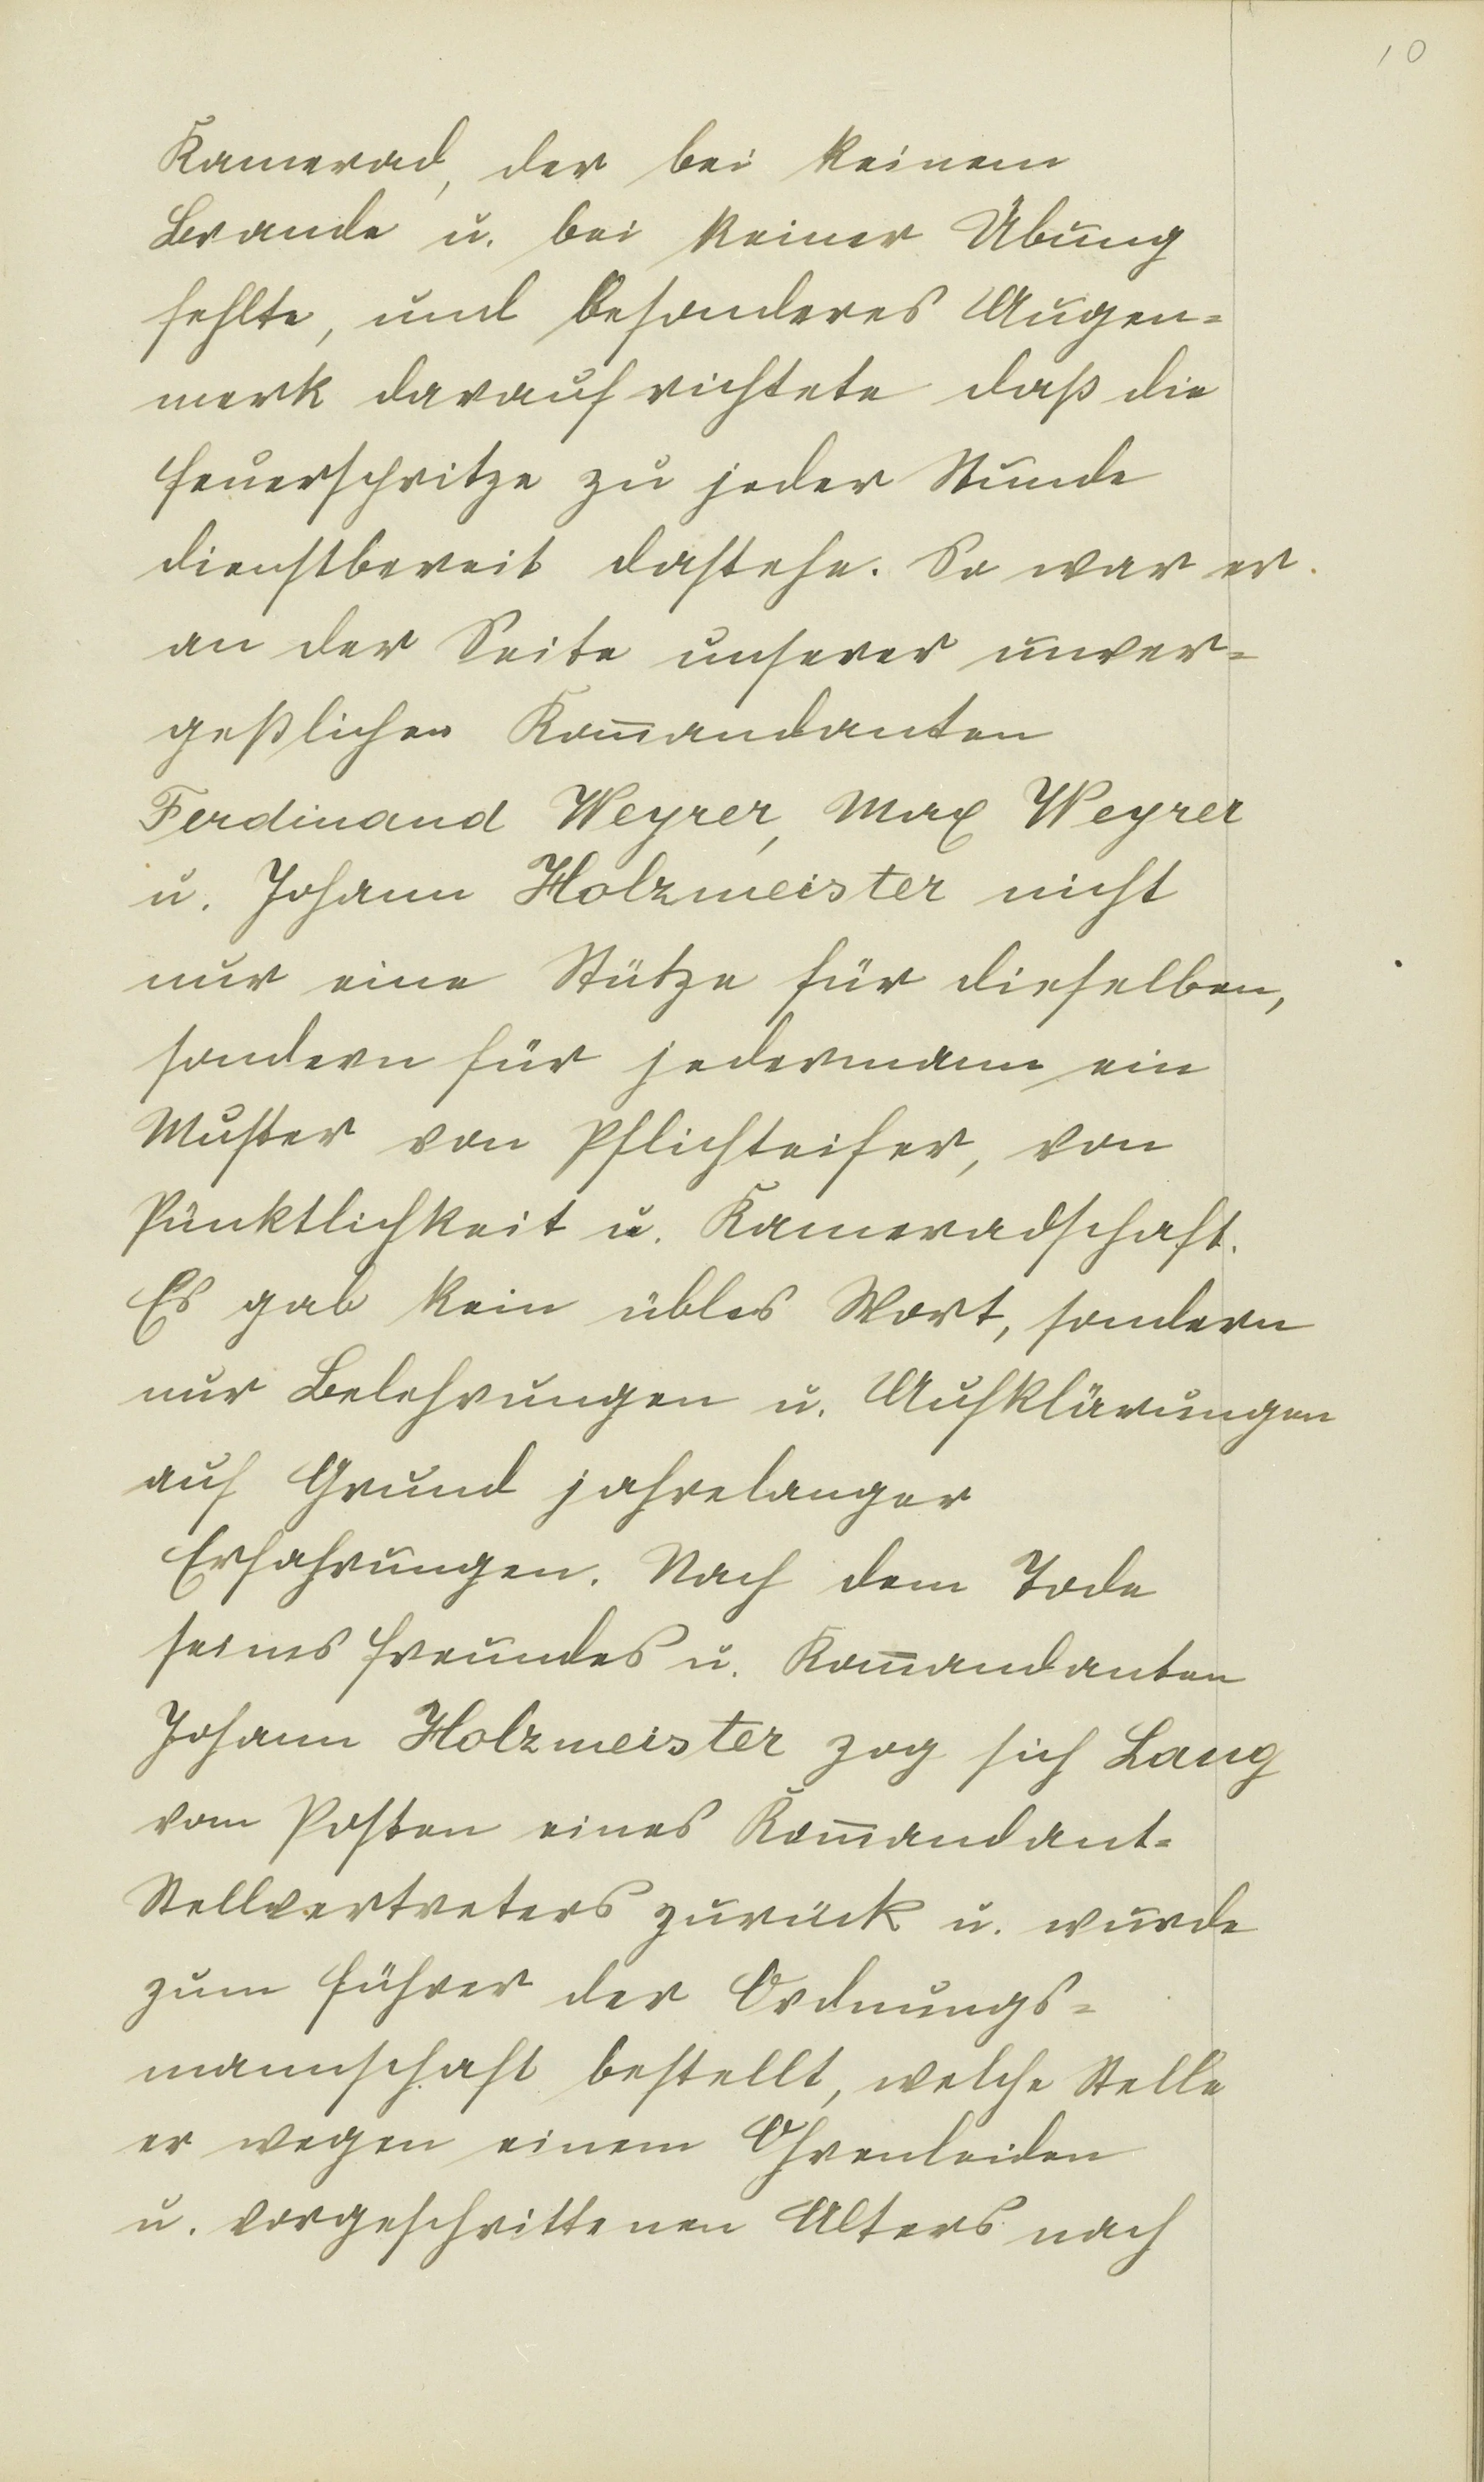 10
Kamerad, der bei keinem
Brande u. bei keiner Übung
fehlte, und besonderes Augen=
merk darauf richtete daß die
Feuerspritze zu jeder Stunde
dienstbereit dastehe. So war er
an der Seite unserer unver=
geßlichen Kom̅andanten
Ferdinand Weyrer, Max Weyrer
u. Johann Holzmeister nicht
nur eine Stütze für dieselben,
sondern für jedermann ein
Muster von Pflichteifer, von
Pünktlichkeit u. Kameradschaft.
Es gab kein übles Wort, sondern
nur Belehrungen u. Aufklärungen
auf Grund jahrelanger
Erfahrungen. Nach dem Tode
seines Freundes u. Kom̅andanten
Johann Holzmeister zog sich Lang
vom Posten eines Kom̅andant=
Stellvertreters zurück u. wurde
zum Führer der Ordnungs=
mannschaft bestellt, welche Stelle
er wegen einem Ohrenleiden
u. vorgeschrittenen Alters nach